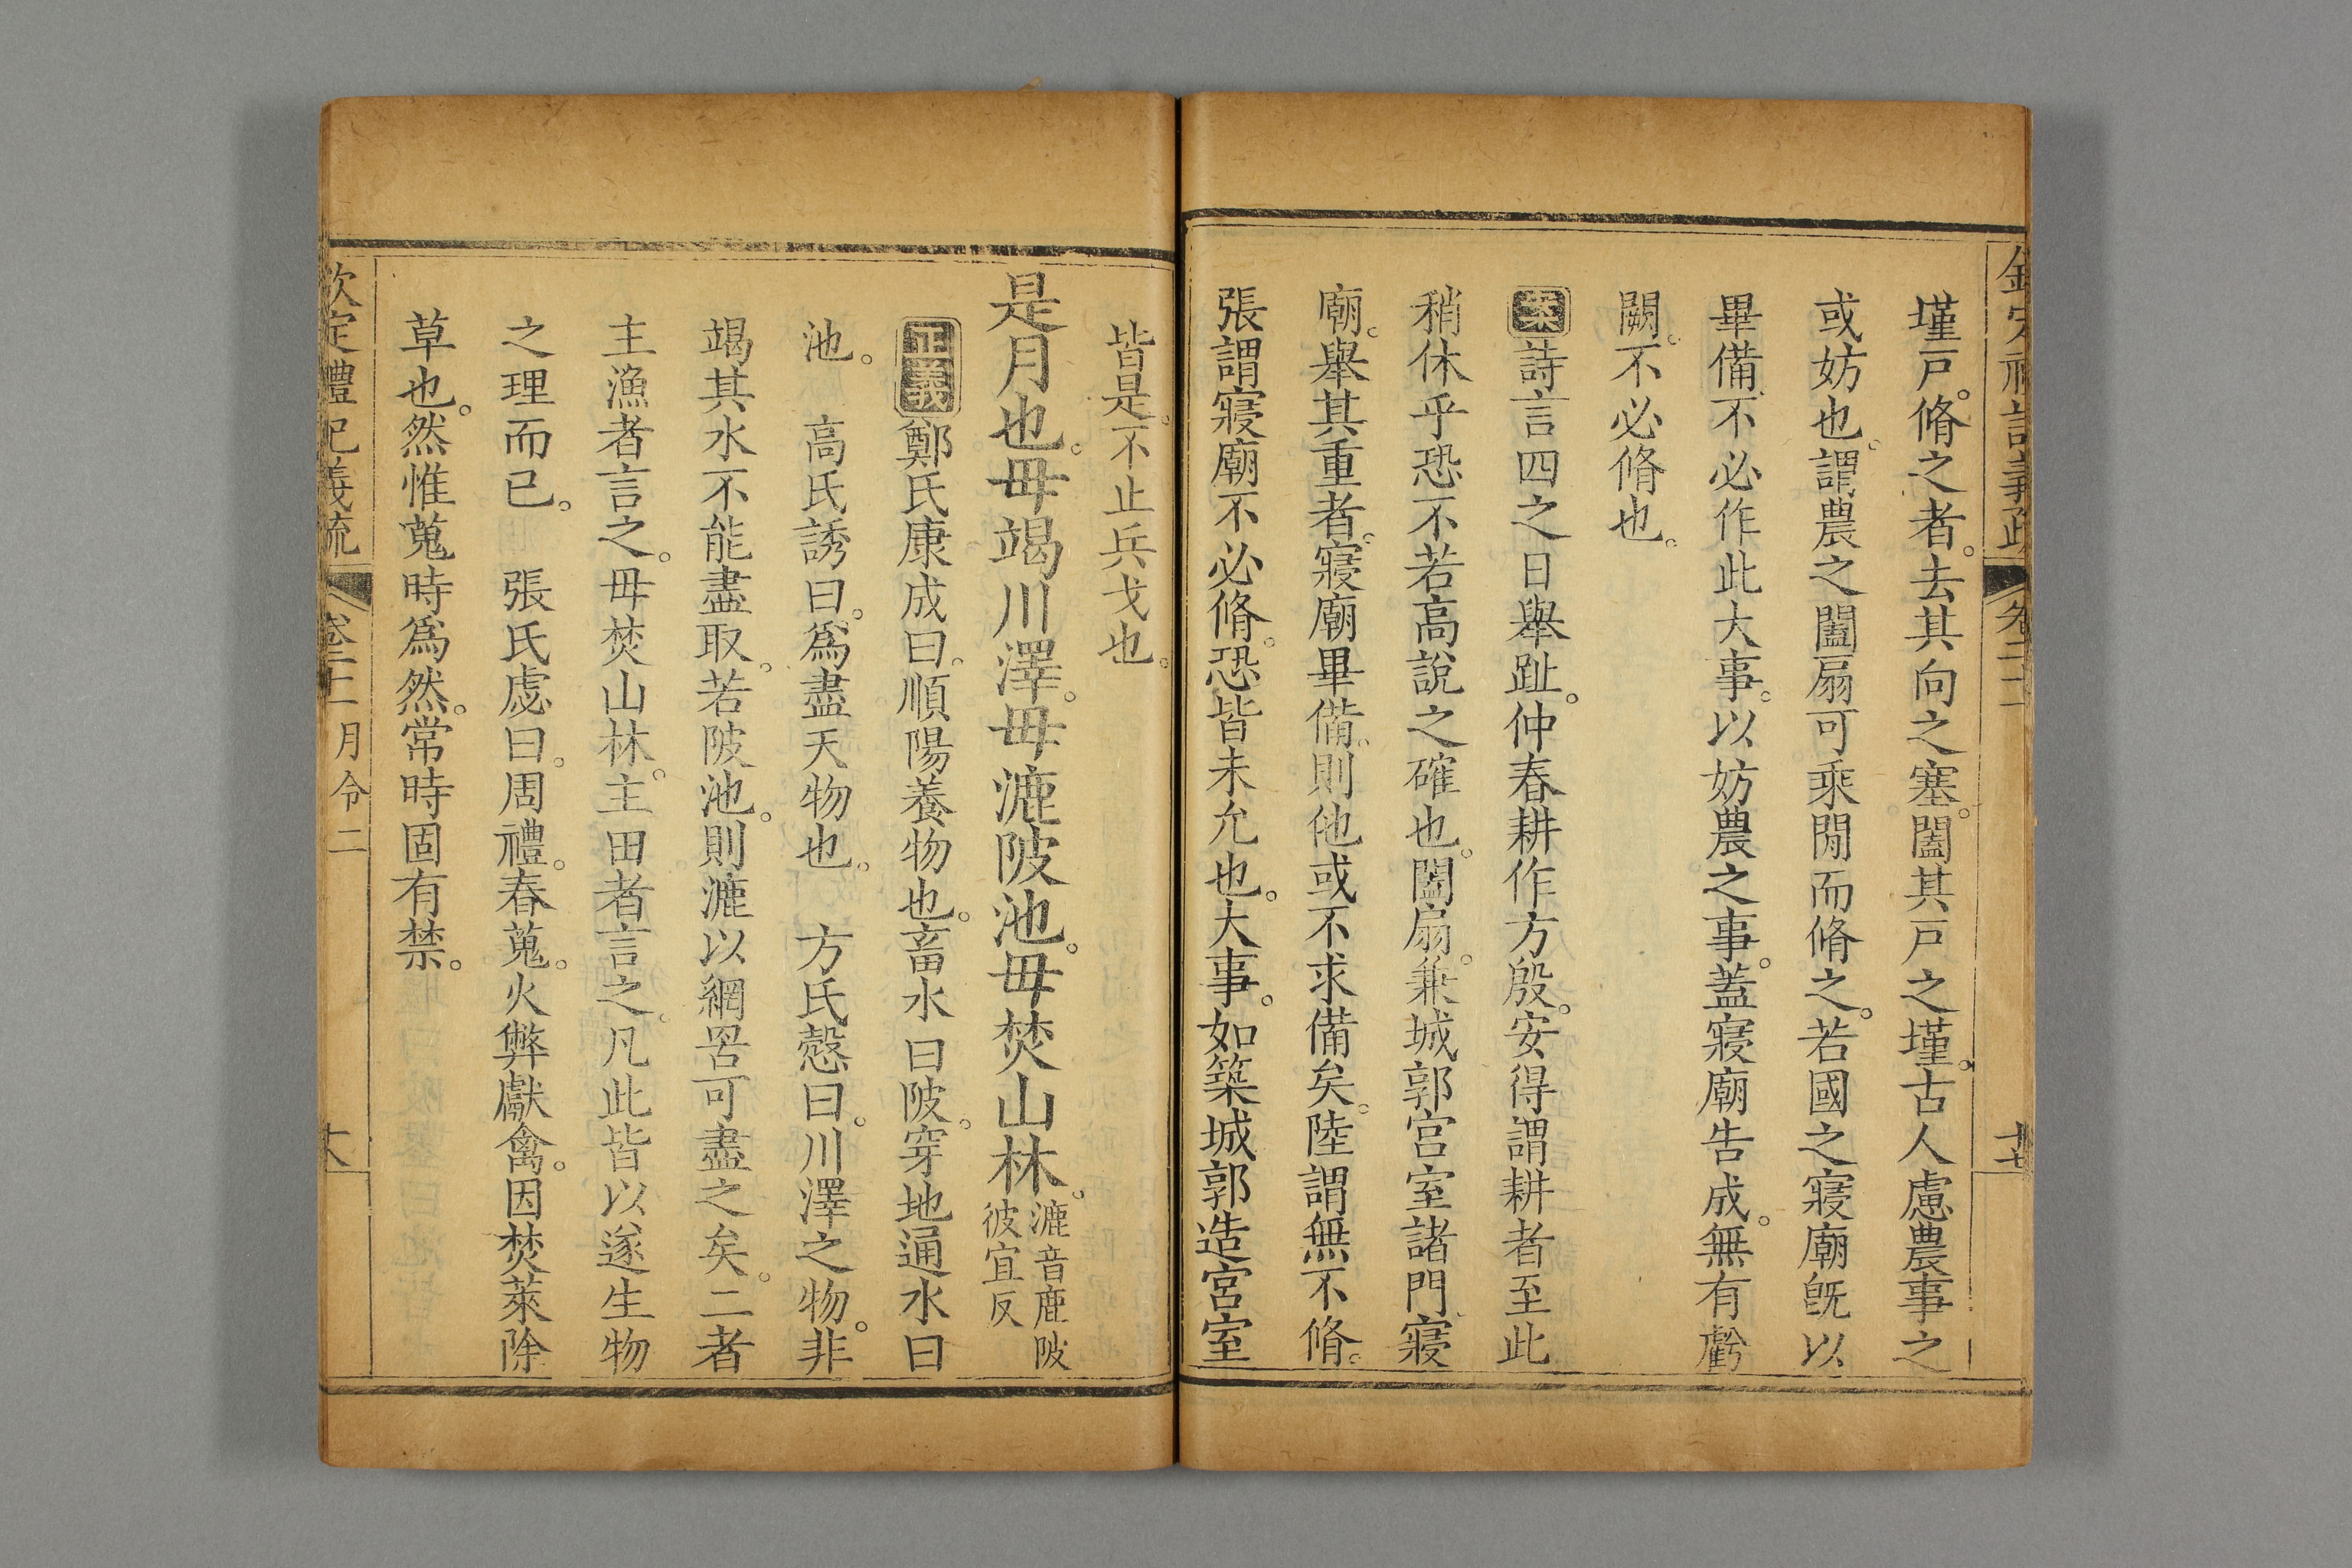 欽定禮記義疏 卷二十二 十七
墐戸。脩之者。去其向之塞。闔其戸之墐。古人慮農事之
或妨也。謂農之闔扇可乘閒而脩之。若國之寢廟旣以
畢備。不必作此大事。以妨農之事。蓋寢廟告成。無有虧
闕。不必脩也。
案詩言四之日舉趾。仲春耕作方殷。安得謂耕者至此
稍休乎恐不若高說之確也。闔扇。兼城郭宮室諸門。寢
廟。舉其重者。寢廟畢備。則他或不求備矣。陸謂無不脩。
張謂寢廟不必脩。恐皆未允也。大事。如築城郭造宮室
皆是。不止兵戈也。
是月也。毋竭川澤。毋漉陂池。毋焚山林。漉音鹿陂
彼宜反
正義鄭氏康成曰。順陽養物也。畜水曰陂。穿地通水曰
池。 高氏誘曰。爲盡天物也。 方氏慤曰。川澤之物。非
竭其水不能盡取。若陂池。則漉以網罟可盡之矣。二者
主漁者言之。毋焚山林。主田者言之。凡此皆以遂生物
之理而已。 張氏虙曰。周禮。春蒐。火弊獻禽。因焚萊除
草也。然惟蒐時爲然。常時固有禁。
欽定禮記義疏 卷二十二 月令二 大